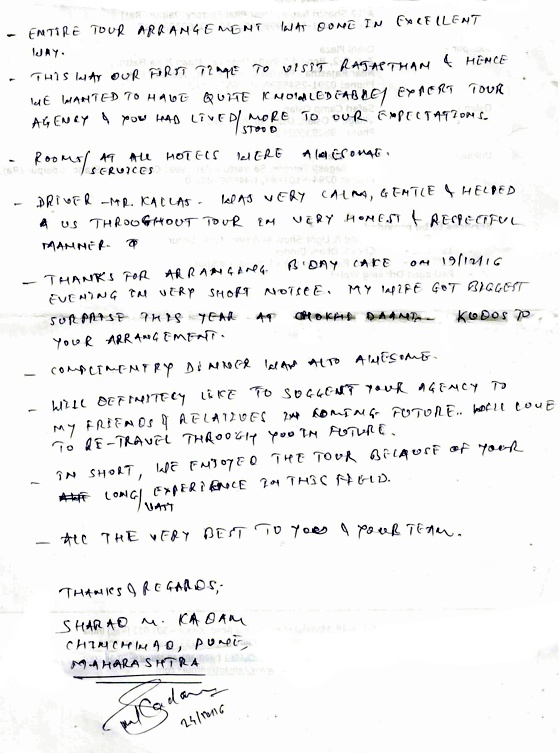 - ENTIRE TOUR ARRANGEMENT WAS DONE IN EXCELLENT
WAY.
- THIS WAS OUR FIRST TIME TO VISIT RAJASTHAN & HENCE
WE WANTED TO HAVE QUITE KNOWLEDEABLE/EXPERT TOUR
AGENCY & YOU HAD LIVED/STOOD MORE TO OUR EXPECTATIONS.
- ROOMS/SERVICES AT ALL HOTELS WERE AWESOME.
- DRIVER - MR. KAILAS. WAS VERY CALM, GENTLE & HELPED
US THROUGHOUT TOUR IN VERY HONEST & RESPECTFUL
MANNER.
- THANKS FOR ARRANGING B'DAY CAKE ON 19/12/16
EVENING IN VERY SHORT NOTICE. MY WIFE GOT BIGGEST
SURPRISE THIS YEAR AT CHOKHI DAANI. KUDOS TO
YOUR ARRANGEMENT.
- COMPLIMENTRY DINNER WAS ALSO AWESOME.
- WILL DEFINITELY LIKE TO SUGGEST YOUR AGENCY TO
MY FRIENDS & RELATIVES IN COMING FUTURE.. WE'LL LOVE
TO RE-TRAVEL THROUGH YOU IN FUTURE.
- IN SHORT, WE ENJOYED THE TOUR BECAUSE OF YOUR
LONG/VAST EXPERIENCE IN THIS FIELD.
- ALL THE VERY BEST TO YOU & YOUR TEAM.
THANKS & REGARDS,
SHARAD M. KADAM
CHINCHWAD, PUNE,
MAHARASHTRA